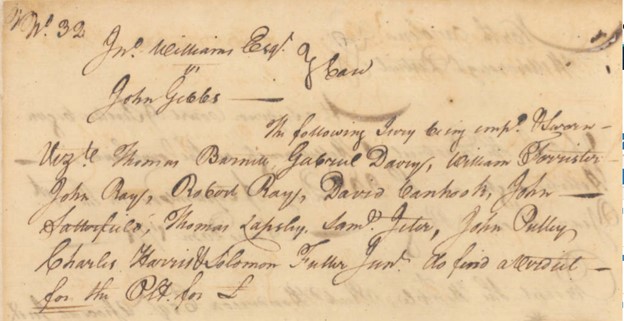 No. 32
Jno. Williams Esqr.
vs } Case
John Gibbs —
The following Jury being emp.d & Sworn –
Vizt. Thomas Barnitt, Gabriel Davey, William Forrister
John Rays, Robert Rays, David Canhook, John —
Satterfield, Thomas Lapsley, Saml. Jeter, John Pulley
Charles Harris & Solomon Fuller Junr. do find a verdict –
for the Plt. for £